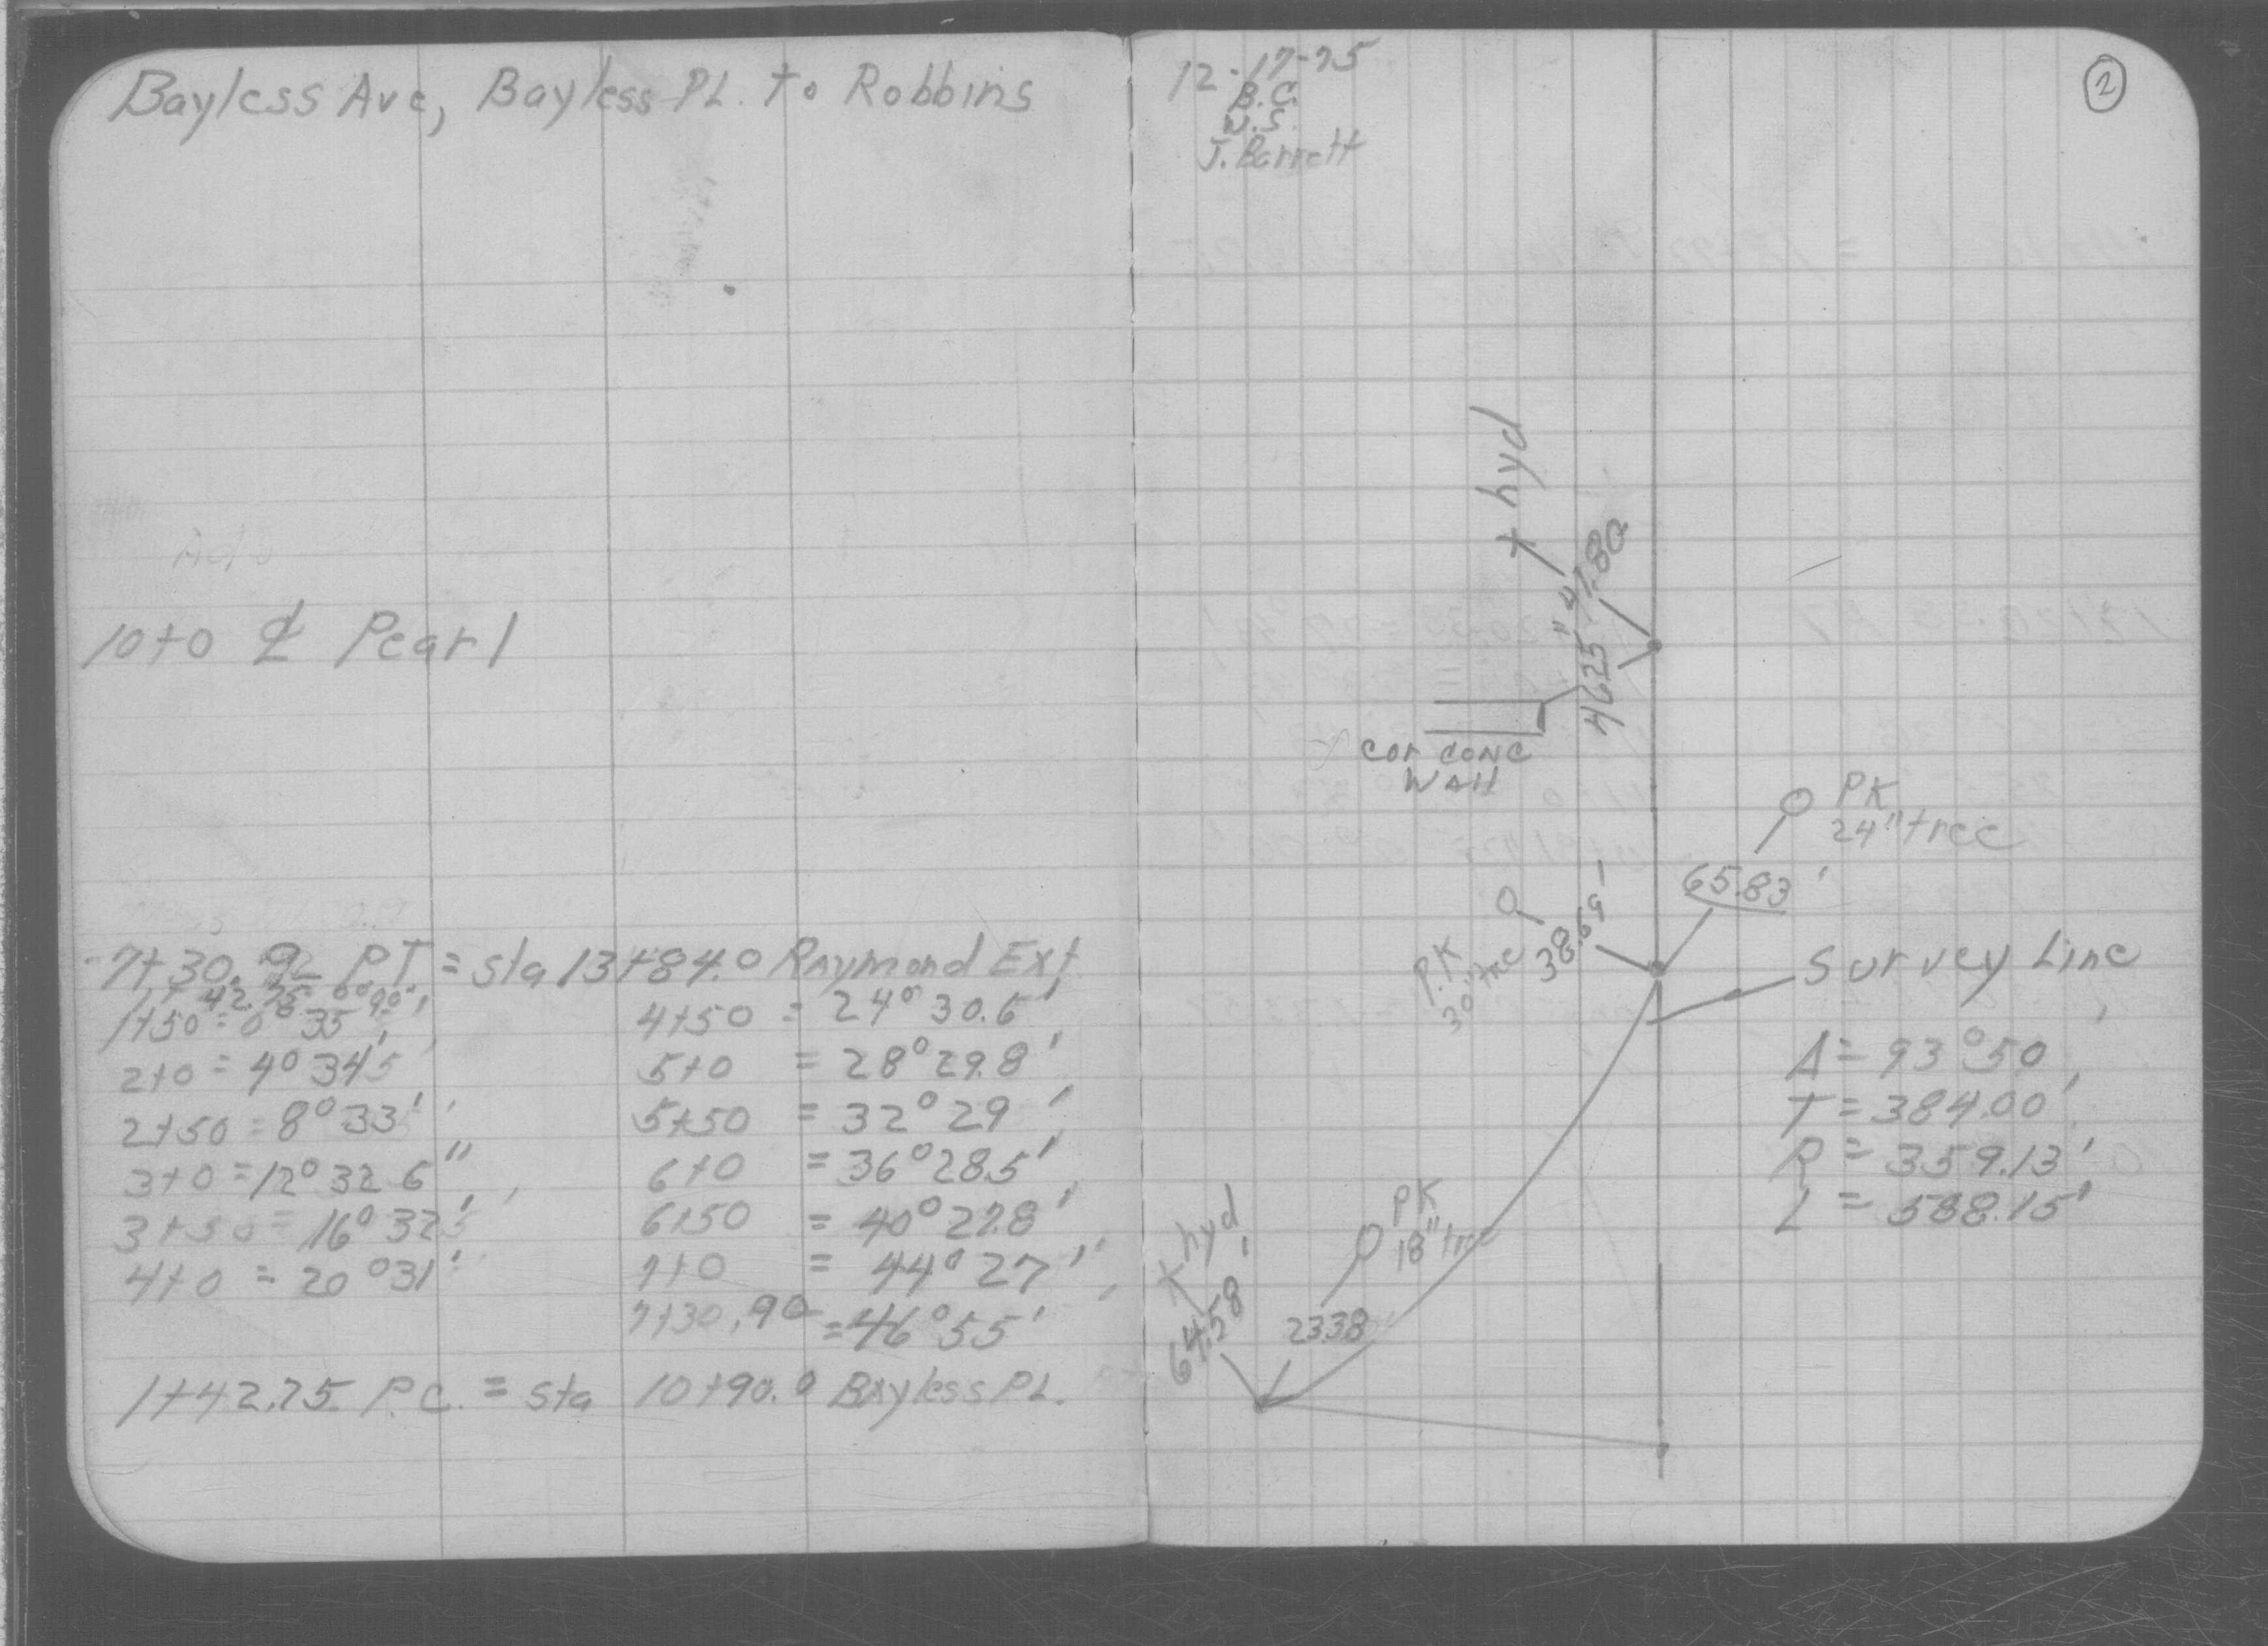 Bayless Ave, Bayless PL. to Robbins
10+0 ₵ Pearl
7+30.92 PT = sta 13+84.0 Raymond Ext
1+42.75 0°00'
1+50 = 0° 35'
2+0 = 4° 34.5'
2+50 = 8° 33'
3+0 = 12° 32 6"
3+50 = 16° 32'
4+0 = 20° 31'
4+50 = 24° 30.6'
5+0 = 28° 29.8'
5+50 = 32° 29'
6+0 = 36° 28.5'
6+50 = 40° 27.8'
7+0 = 44° 27'
7+30.90 = 46° 55'
1+42.75 P.C. = sta 10+90.0 Bayless PL.
12-17-75
B.C.
W.S.
J. Barrett
2
+ hyd
41.80
46.25
cor conc
Wall
PK
24" tree
65.83'
P.K
30" tree
38.69'
Survey Line
Δ = 93°50'
T = 384.00'
R = 359.13'
L = 588.15'
PK
18" tree
x hyd
64.58'
23.38